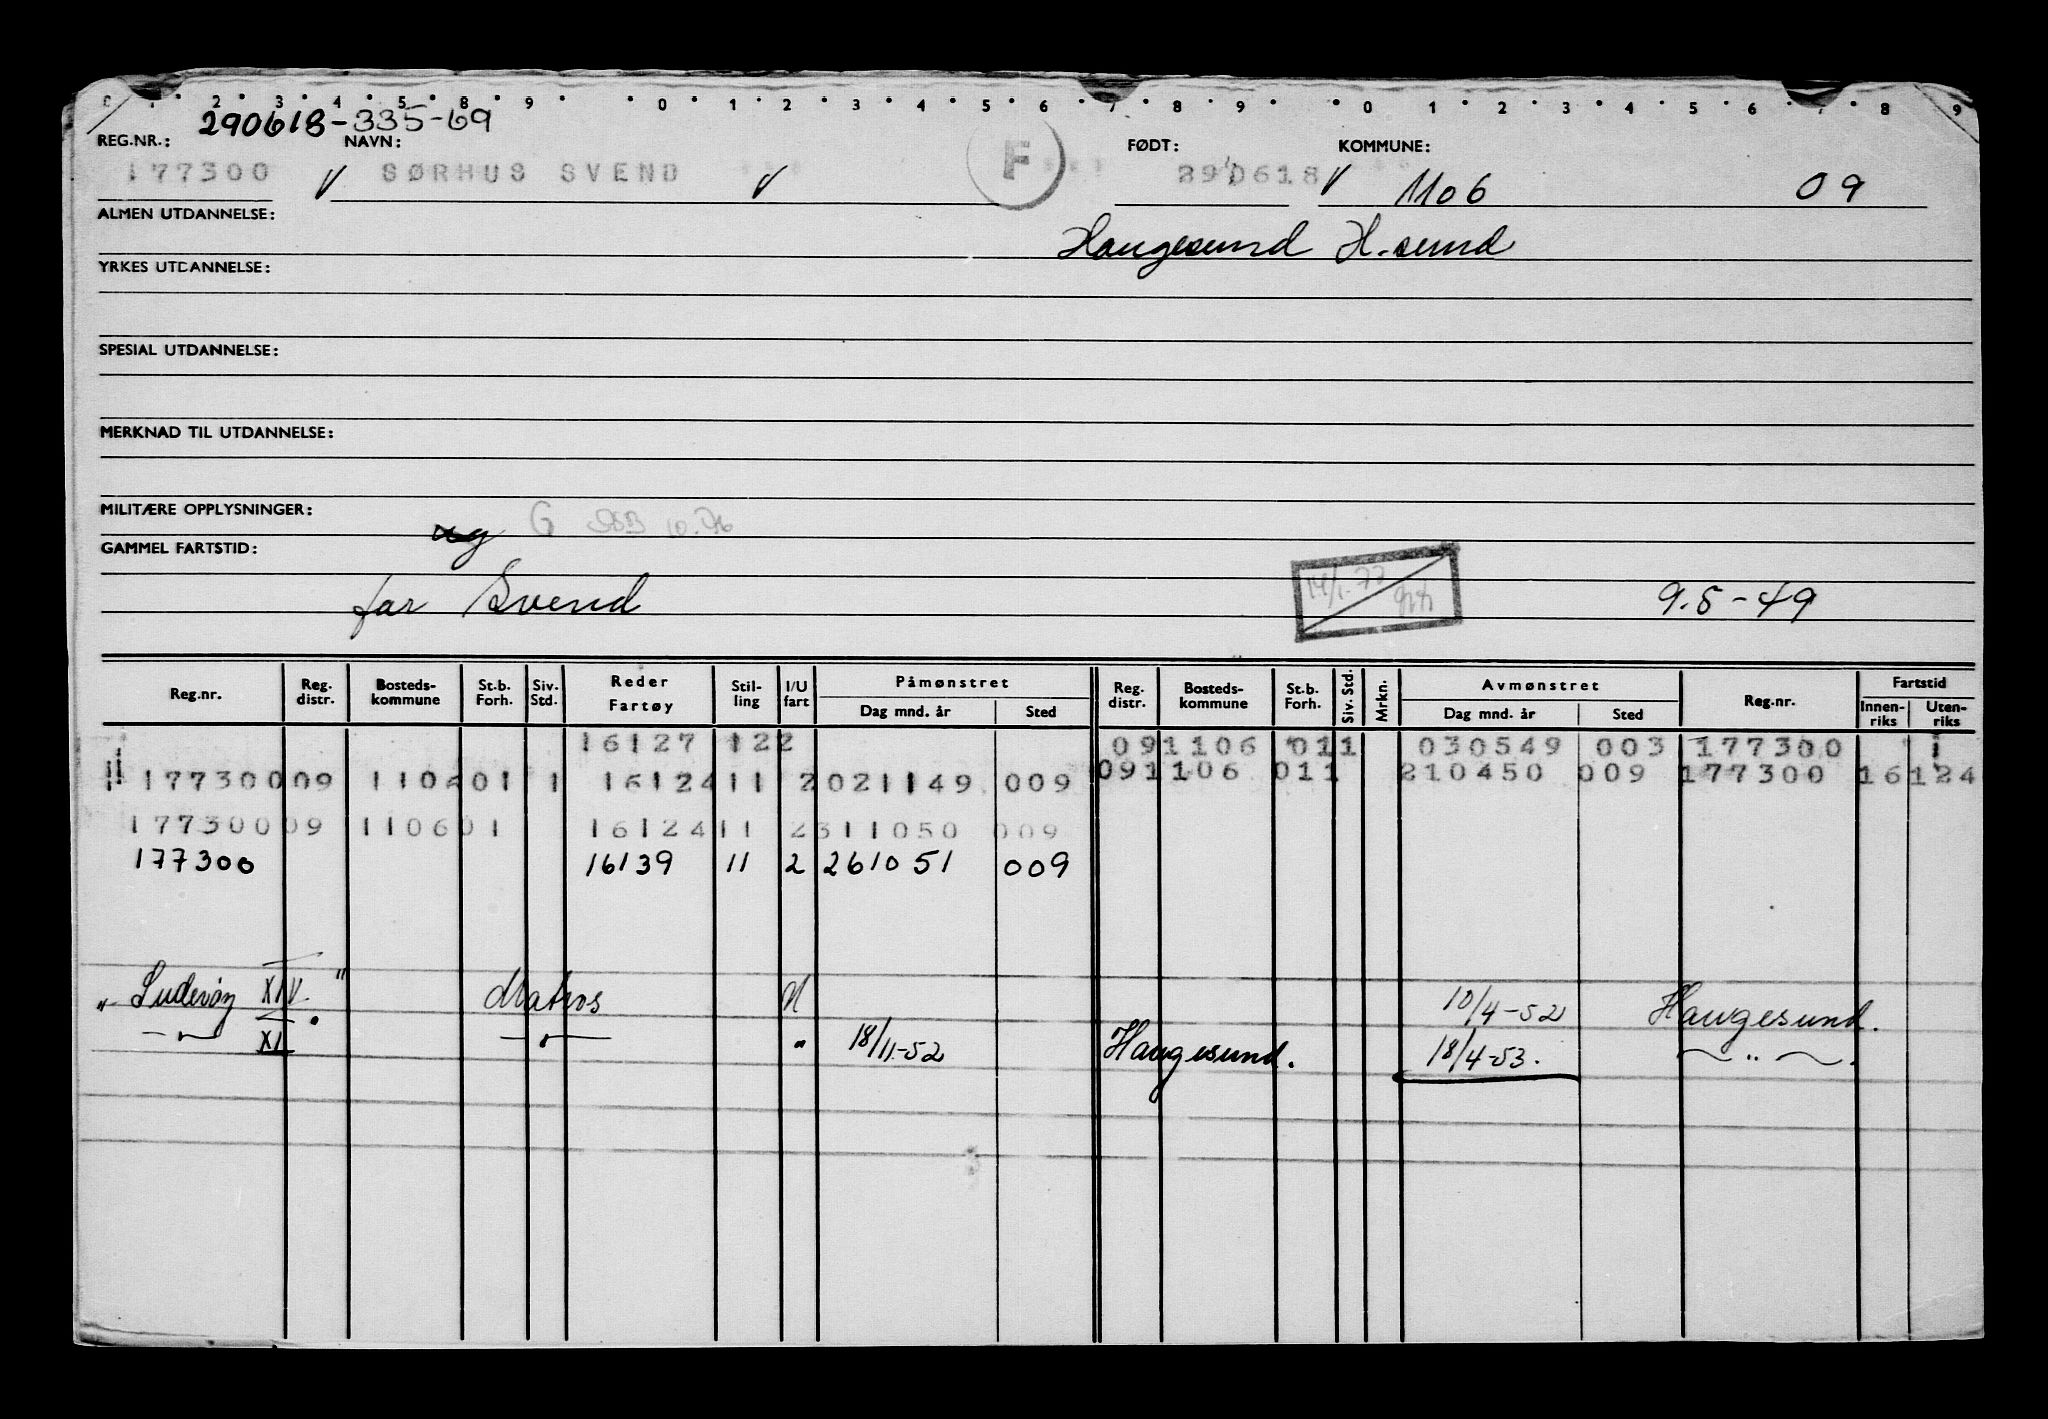 0 1 2 3 4 5 8 9 0 1 2 3 4 5 6 7 8 9 0 1 2 3 4 5 6 7 8 9
290618-335-69
REG.NR.: NAVN: FØDT: KOMMUNE:
177300 V SØRHUS SVEND V F 290618 V 1106 09
ALMEN UTDANNELSE:
Haugesund H.sund
YRKES UTDANNELSE:
SPESIAL UTDANNELSE:
MERKNAD TIL UTDANNELSE:
MILITÆRE OPPLYSNINGER:
ug G
GAMMEL FARTSTID:
far Svend 9.5-49
Reg.nr. Reg. distr. Bosteds-kommune St.b. Forh. Siv. Std. Reder Fartøy Stil-ling I/U fart Påmønstret Dag mnd. år Sted Reg. distr. Bosteds-kommune St.b. Forh. Siv. Std. Mrkn. Avmønstret Dag mnd. år Sted Reg.nr. Fartstid Innen-riks Uten-riks
16127 122 09 1106 011 030549 003 177300 1
177300 09 1106 01 1 16124 11 2 021149 009 09 1106 011 210450 009 177300 16124
177300 09 1106 01 16124 11 2 311050 009
177300 16139 11 2 261051 009
" XIV." Matros U 10/4-52 Haugesund.
-"- XI -"- " 18/11-52 Haugesund. 18/4-53. -"-